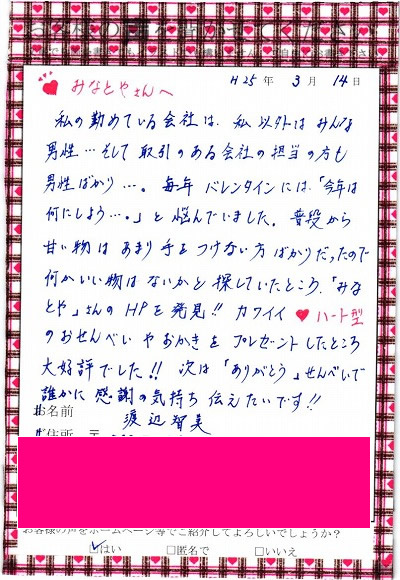 H25年 3月 14日
みなとやさんへ
私の勤めている会社は、私以外はみんな
男性…そして取引のある会社の担当の方も
男性ばかり…。毎年バレンタインには、「今年は
何にしよう…。」と悩んでいました。普段から
甘い物はあまり手をつけない方ばかりだったので
何かいい物はないかと探していたところ、「みな
とや」さんのHPを発見!! カワイイ♥ハート型
のおせんべいやおかきをプレゼントしたところ
大好評でした!! 次は「ありがとう」せんべいで
誰かに感謝の気持ち伝えたいです!!
お名前 渡辺智美
ご住所 〒
お客様の声をホームページ等でご紹介してよろしいでしょうか?
☑はい □匿名で □いいえ